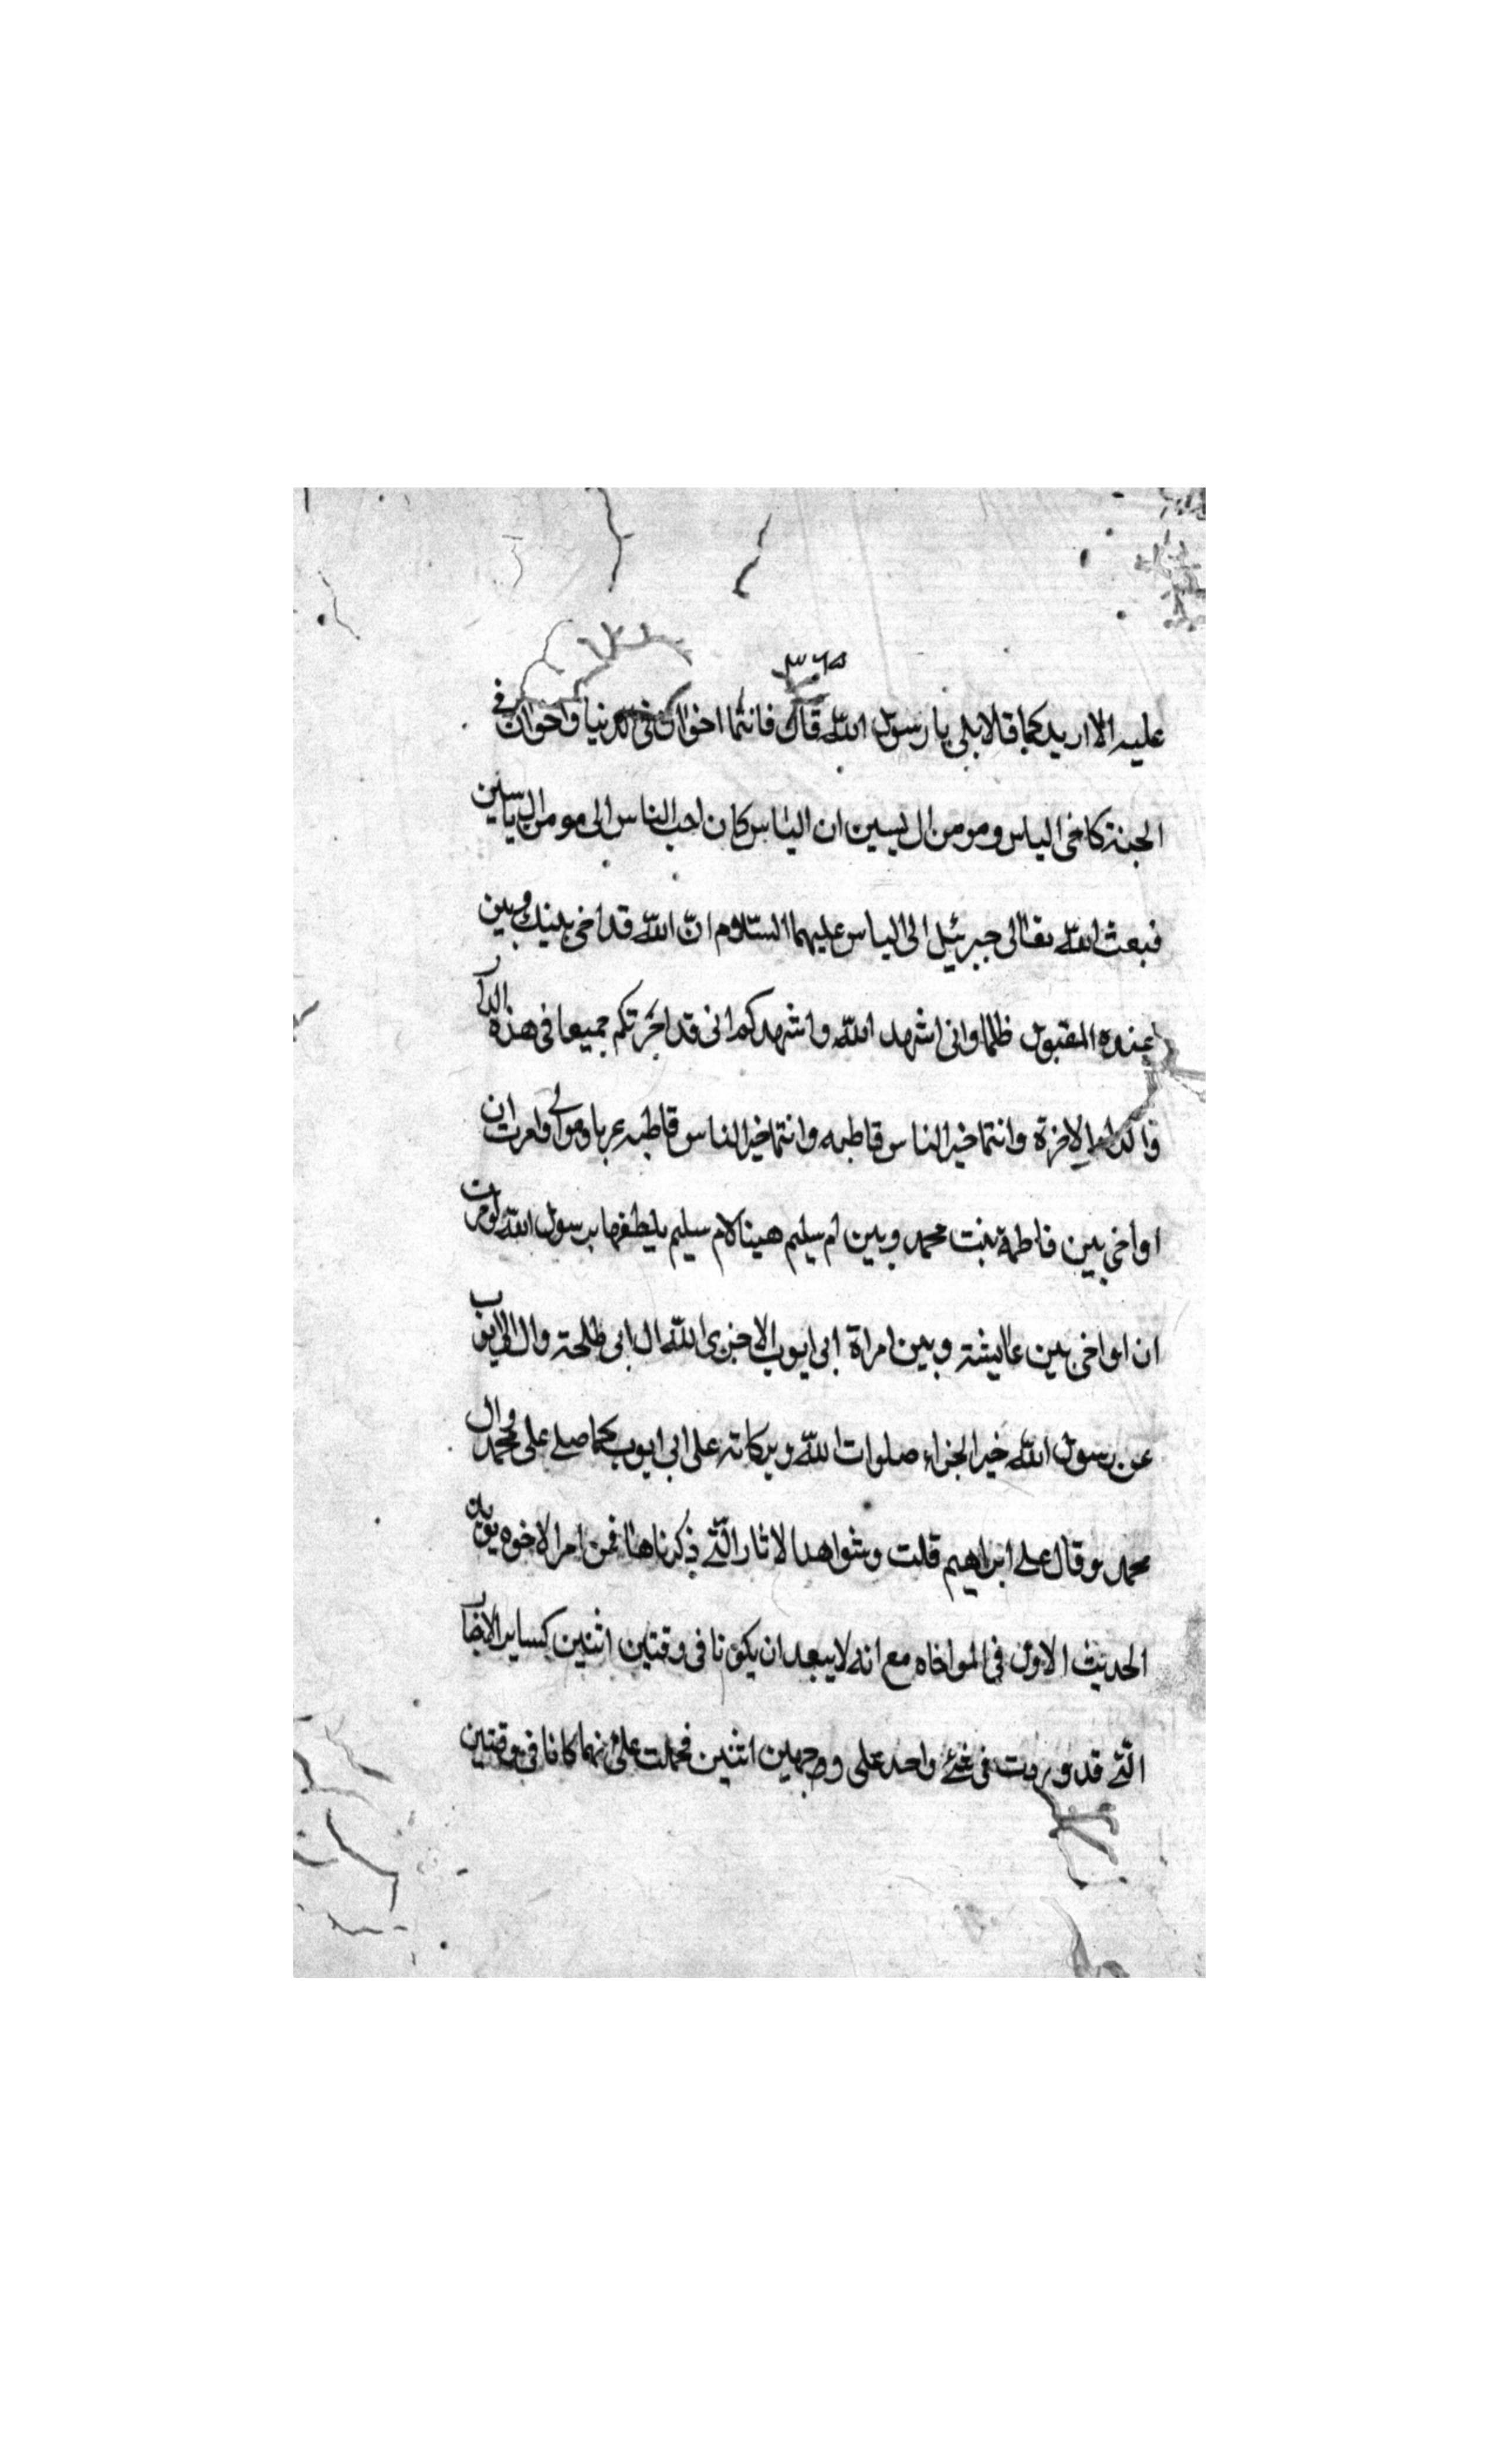 ٣٦٥
عليه الا اريدكما قالا بلى يا رسول الله قال فانتما اخوان فى الدنيا واخوان فى
الجنة كاخى الياس ومومن ال يسين ان الياس كان احب الناس الى مومن ال ياسين
فبعث الله تعالى جبرئيل الى الياس عليهما السلام ان الله قد اخى بينك وبين
عنده المقبول ظلما وانى اشهد الله واشهدكم انى قد اجرتكم جميعا فى هذه الدار
وانتما خير الناس قاطبه وانتما خير الناس قاطبه عربا وموالى وامرت ان
اواخى بين فاطمة بنت محمد وبين ام سليم هينا لام سليم بلطفها برسول الله وامرت
ان اواخى بين عايشة وبين امراة ابى ايوب الا جزى الله ال ابى طلحة وال ابى ايوب
عن رسول الله خير الجزاء صلوات الله وبركاته على ابى ايوب كما صلى على محمد وال
محمد وقال على ابراهيم قلت وشواهد الاثار التى ذكرناها فمن امر الاخوه
الحديث الاول فى المواخاه مع انه لا يبعد ان يكونا فى وقتين اثنين كساير
التى قد وردت فى شئ واحد على وجهين اثنين فحملت على انهما كانا فى وقتين